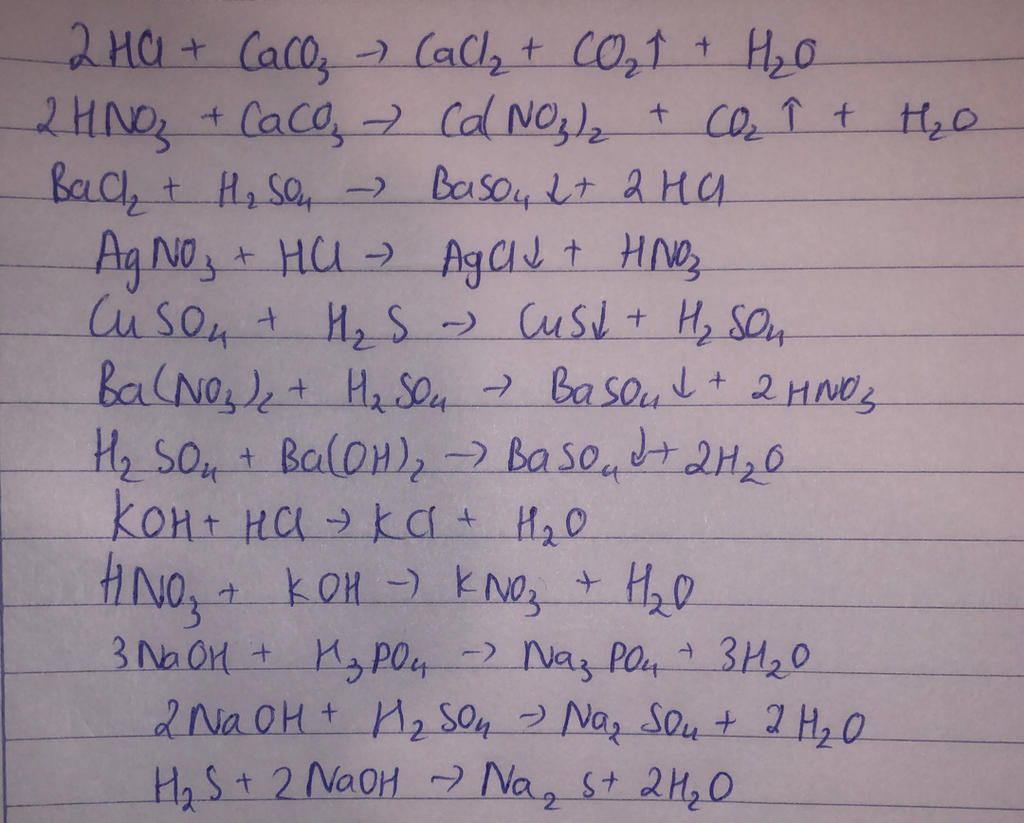 2HCl + CaCO₃ → CaCl₂ + CO₂↑ + H₂O
2HNO₃ + CaCO₃ → Ca(NO₃)₂ + CO₂↑ + H₂O
BaCl₂ + H₂SO₄ → BaSO₄↓ + 2HCl
AgNO₃ + HCl → AgCl↓ + HNO₃
CuSO₄ + H₂S → CuS↓ + H₂SO₄
Ba(NO₃)₂ + H₂SO₄ → BaSO₄↓ + 2HNO₃
H₂SO₄ + Ba(OH)₂ → BaSO₄↓ + 2H₂O
KOH + HCl → KCl + H₂O
HNO₃ + KOH → KNO₃ + H₂O
3NaOH + H₃PO₄ → Na₃PO₄ + 3H₂O
2NaOH + H₂SO₄ → Na₂SO₄ + 2H₂O
H₂S + 2NaOH → Na₂S + 2H₂O